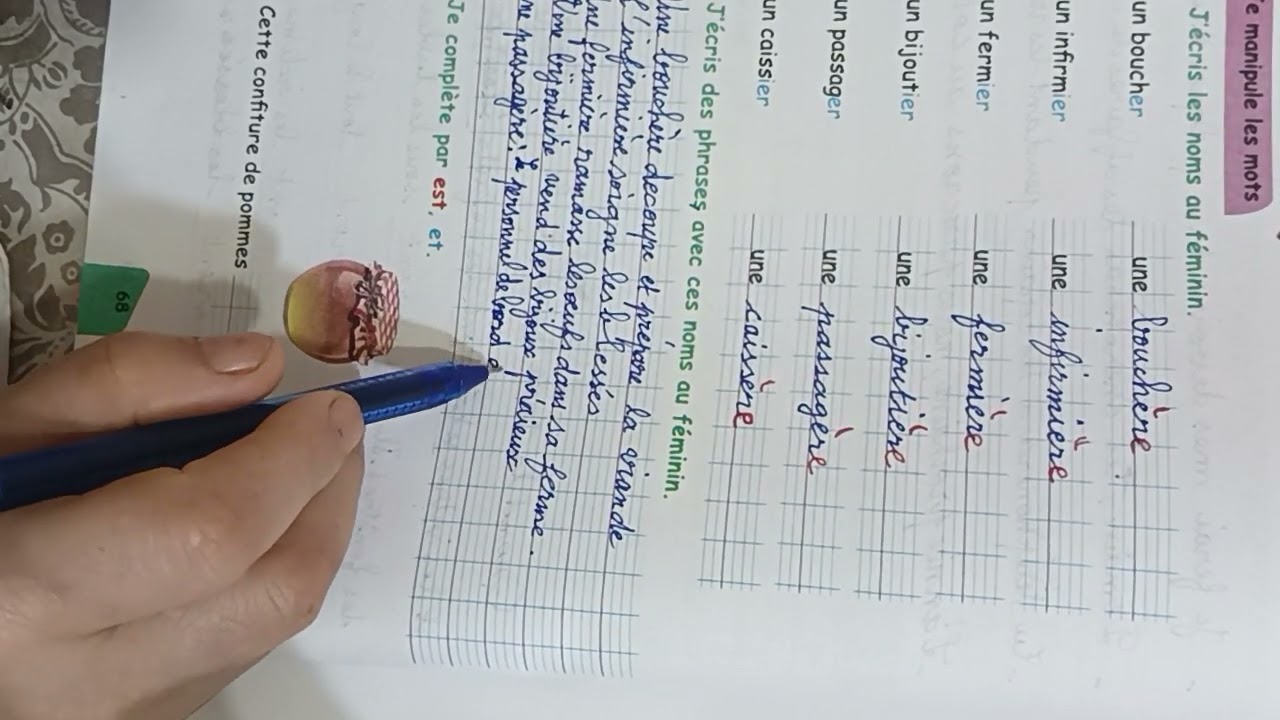 Je manipule les mots
J'écris les noms au féminin.
un boucher une bouchère
un infirmier une infirmière
un fermier une fermière
un bijoutier une bijoutière
un passager une passagère
un caissier une caissère
J'écris des phrases avec ces noms au féminin.
Une bouchère decoupe et prépare la viande
L'infirmière soigne les blessés
une fermière ramasse les œufs dans sa ferme.
Une bijoutière vend des bijoux précieux
une passagère: personnel de bord
Je complète par est, et.
Cette confiture de pommes
68